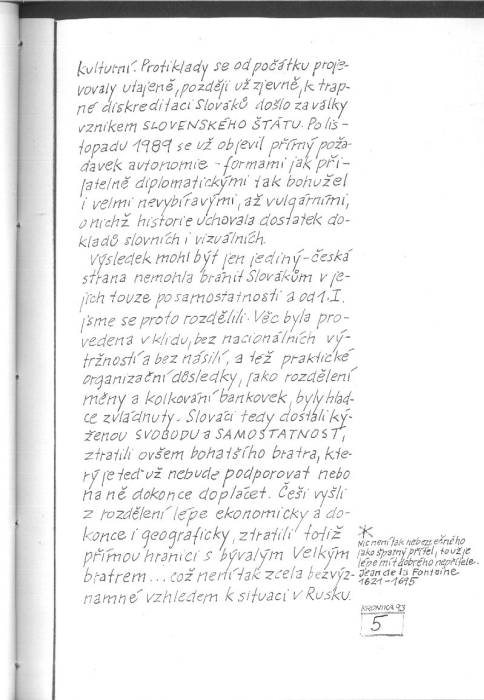 kulturní. Protiklady se od počátku proje-
vovaly utajeně, později už zjevně, k trap-
né diskreditaci Slováků došlo za války
vznikem SLOVENSKÉHO ŠTÁTU. Po lis-
topadu 1989 se už objevil přímý poža-
davek autonomie - formami jak při-
jatelně diplomatickými tak bohužel
i velmi nevybíravými, až vulgárními,
o nichž historie uchovala dostatek do-
kladů slovních i vizuálních.
Výsledek mohl být jen jediný - česká
strana nemohla bránit Slovákům v je-
jich touze po samostatnosti a od 1.I.
jsme se proto rozdělili. Věc byla pro-
vedena v klidu, bez nacionálních vý-
tržností a bez násilí, a též praktické
organizační důsledky, jako rozdělení
měny a kolkování bankovek, byly hlad-
ce zvládnuty. Slováci tedy dostali ký-
ženou SVOBODU a SAMOSTATNOST,
ztratili ovšem bohatšího bratra, kte-
rý je teď už nebude podporovat nebo
na ně dokonce doplácet. Češi vyšli
z rozdělení lépe ekonomicky a do-
konce i geograficky, ztratili totiž
přímou hranici s bývalým Velkým
bratrem... což není tak zcela bezvýz-
namné vzhledem k situaci v Rusku.
*
Nic není tak nebezpečného
jako špatný přítel, to už je
lépe mít dobrého nepřítele.
Jean de la Fontaine
1621-1695
KRONIKA 93
5